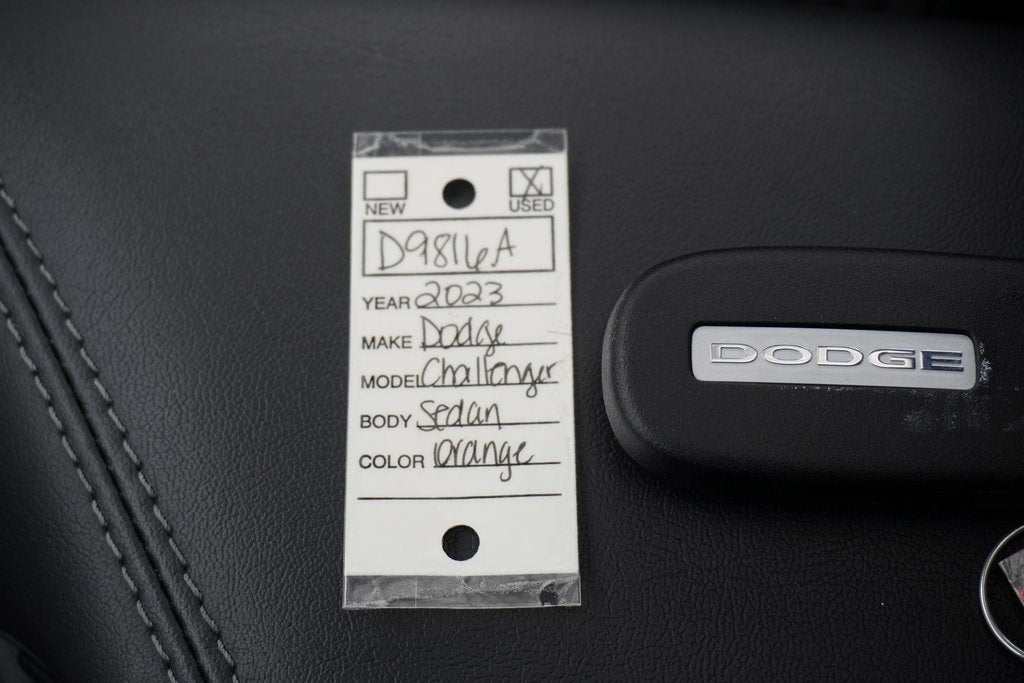 NEW USED
D9816A
YEAR 2023
MAKE Dodge
MODEL Challenger
BODY Sedan
COLOR orange
DODGE